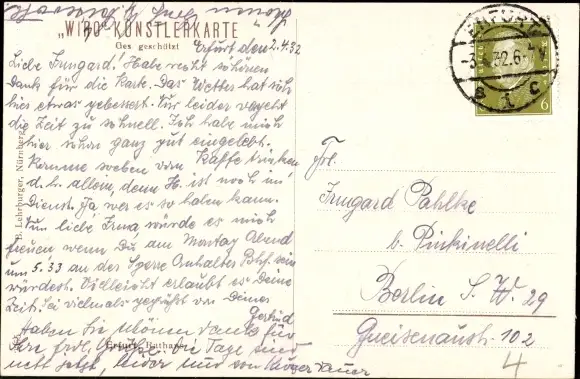 „WIRO" KÜNSTLERKARTE
Ges geschützt
Erfurt den 2.4.32
Liebe Irmgard! Habe recht schönen
Dank für die Karte. Das Wetter hat sich
hier etwas gebessert. Nur leider vergeht
die Zeit zu schnell. Ich habe mich
hier schon ganz gut eingelebt.
Komme soeben vom Kaffe trinken
d.h. allein, denn H. ist noch im
Dienst. Ja wer es so haben kann.
Nun liebe Irma, würde es mich
freuen, wenn Du am Montag Abend
um 5.33 an der Sperre Anhalter Bhf. sein
würdest. Vielleicht erlaubt es Deine
Zeit. Sei vielmals gegrüßt von Deiner
Gertrud
Haben Sie schönen Dank für
Ihre frdl. die Tage sind
nett jetzt, leider nur von kurzer Dauer
B. Lehrburger, Nürnberg
Erfurt, Rathaus
ERFURT
-3.4.32.6-
s c
6
Frl.
Irmgard Pahlke
b. Pinkinelli
Berlin S.W. 29
Gneisenaustr. 102
4